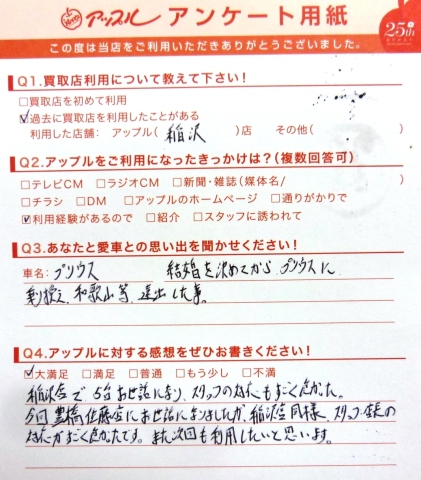 アップル アンケート用紙 25th
この度は当店をご利用いただきありがとうございました。
Q1.買取店利用について教えて下さい!
□買取店を初めて利用
☑過去に買取店を利用したことがある
利用した店舗: アップル( 稲沢 )店 その他( )
Q2.アップルをご利用になったきっかけは?(複数回答可)
□テレビCM □ラジオCM □新聞・雑誌(媒体名/ )
□チラシ □DM □アップルのホームページ □通りがかりで
☑利用経験があるので □紹介 □スタッフに誘われて
Q3.あなたと愛車との思い出を聞かせください!
車名: プリウス 結婚を決めてから、プリウスに
乗り換え、和歌山等、遠出した事。
Q4.アップルに対する感想をぜひお書きください!
☑大満足 □満足 □普通 □もう少し □不満
稲沢店で 5台お世話になり、スタッフの対応もすごく良かった。
今回 豊橋佐藤店にお世話になりましたが、稲沢店同様、スタッフ、店長の
対応がすごく良かったです。また次回も利用したいと思います。